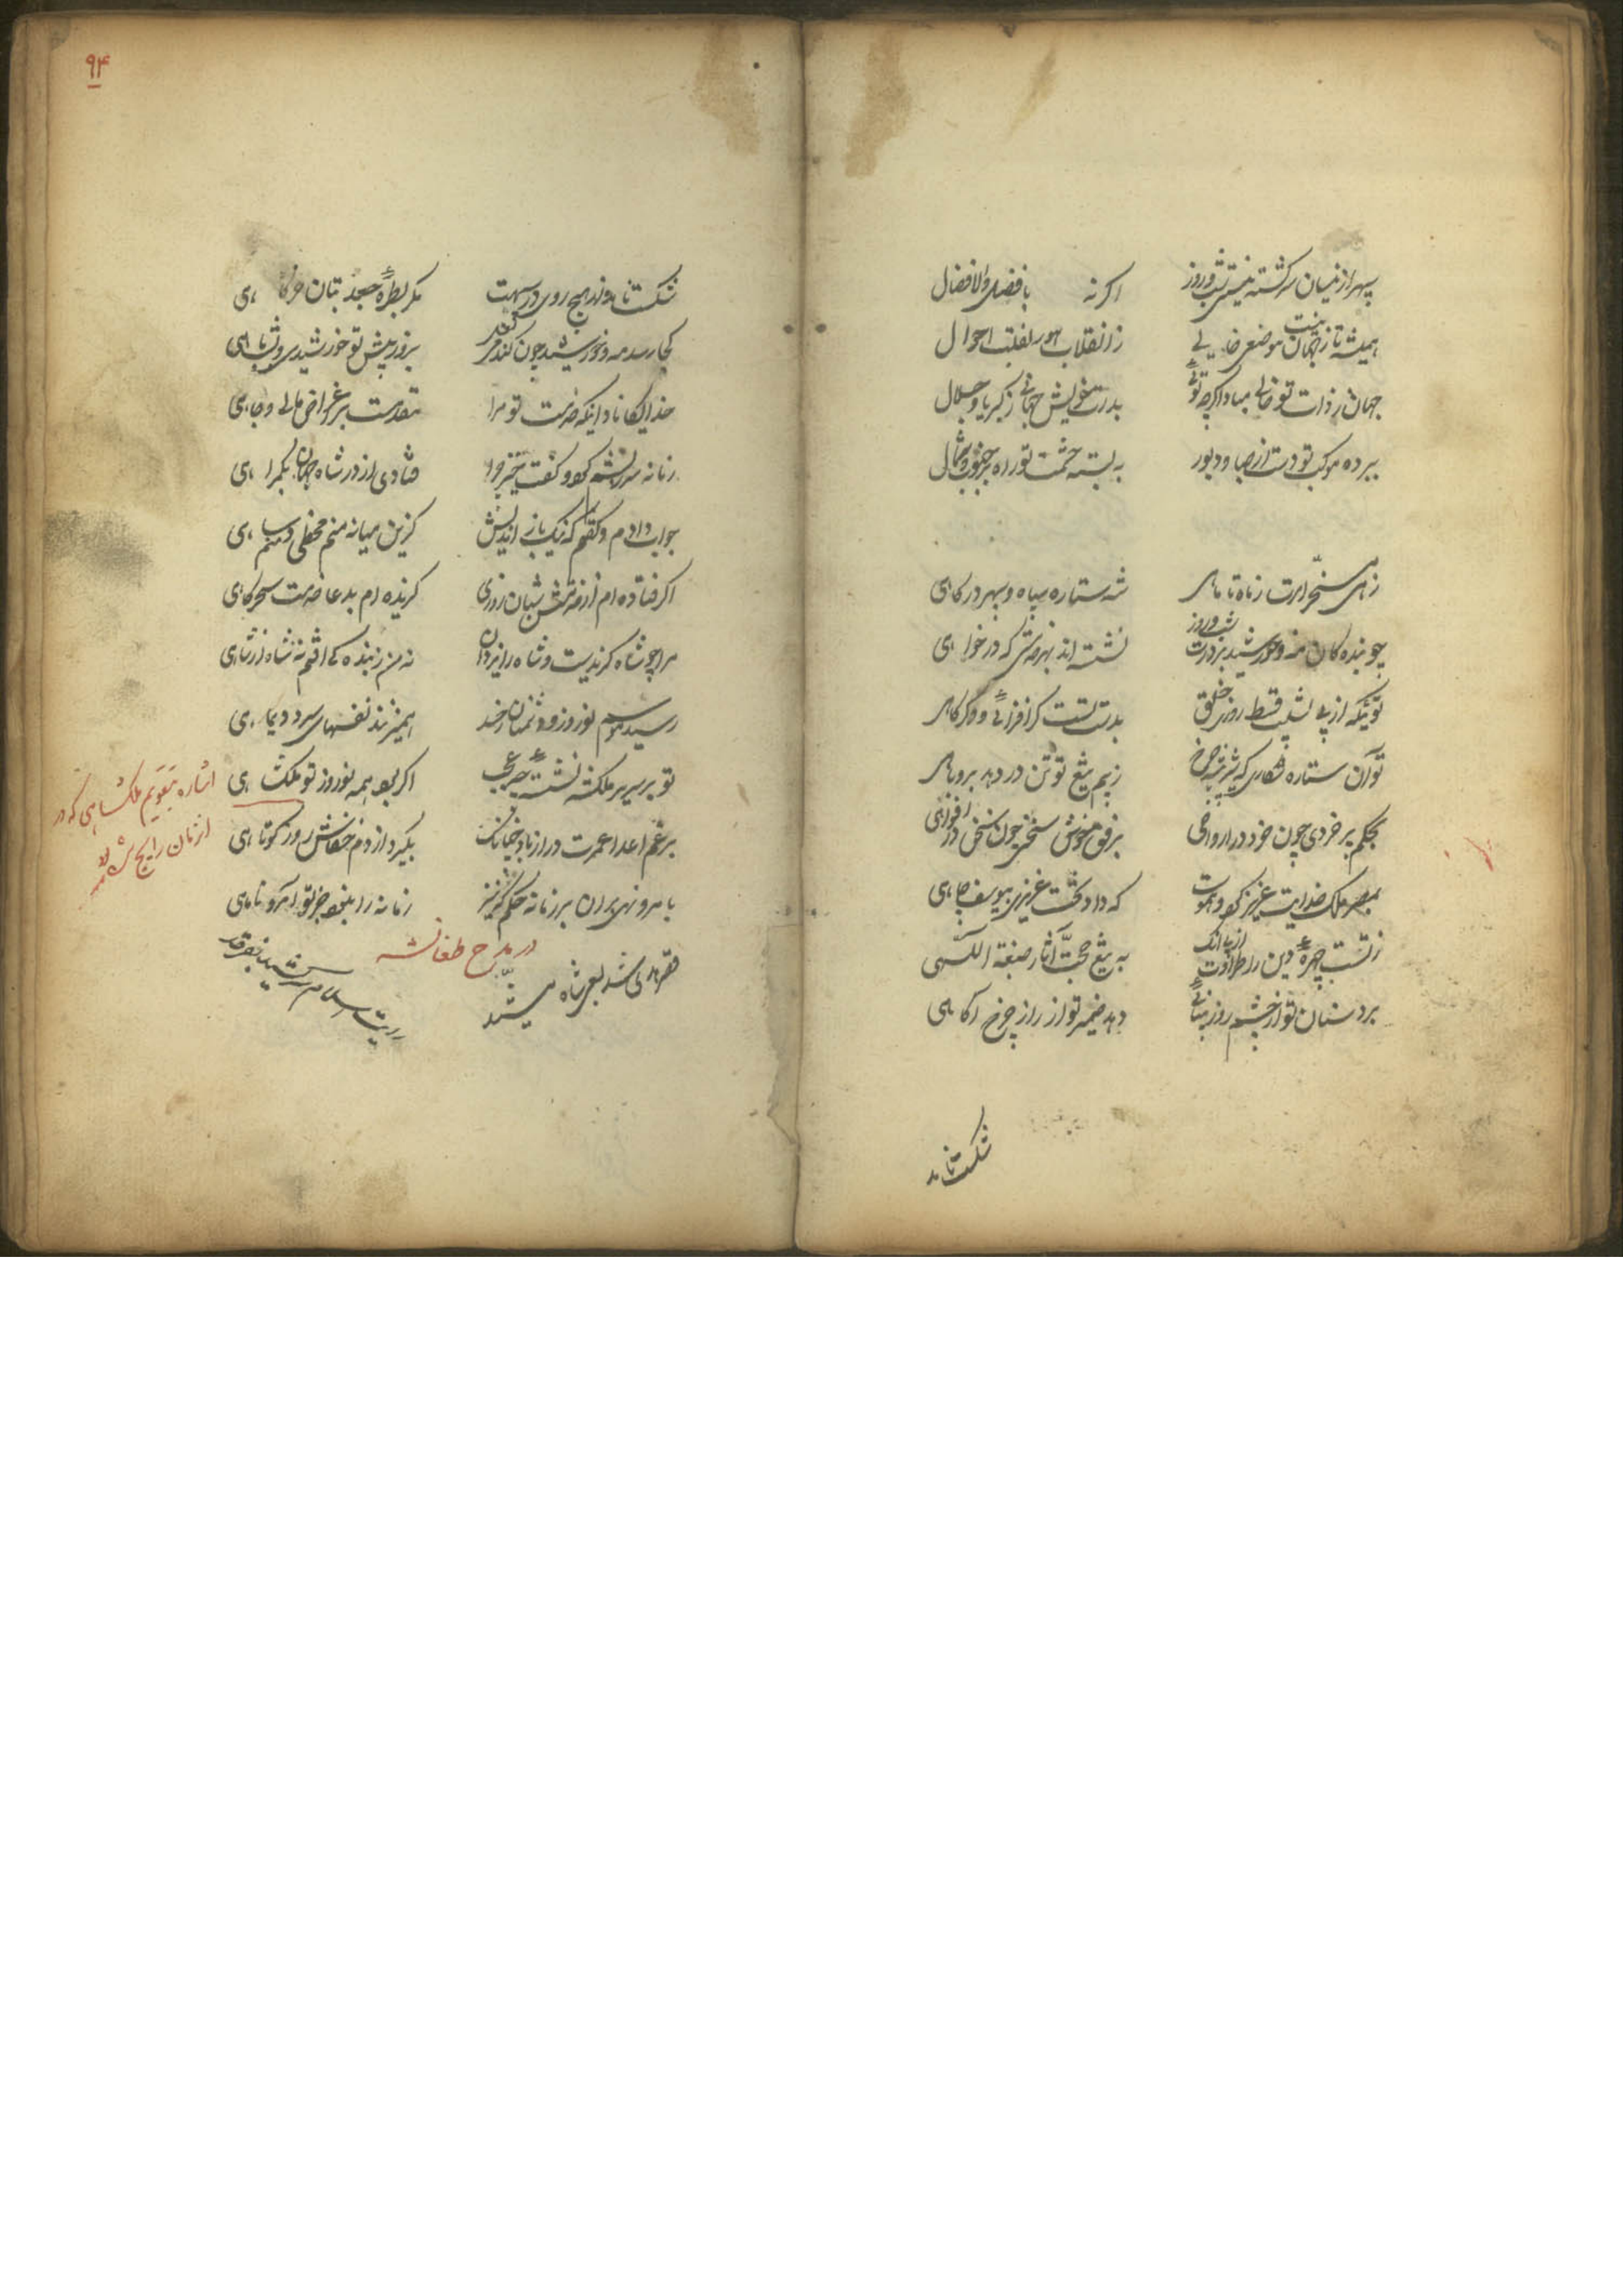 سپهر از میان سرگشته نیستی شب و روز اگر نه با فضل والافضال
همیشه تا ز جهان نیست موضعی خالی ز انقلاب امور و تقلب احوال
جهان ز ذات تو خالی مباد اگرچه توئی بذات خویش جهانی ز کبریا و جلال
ببرده موکب تو دست از صبا و دبور ببسته حشمت تو راه بر جنوب و شمال
زهی مسخر امرت ز ماه تا ماهی شه ستاره سپاه و سپهر درگاهی
چو بندگان مه و خورشید بر درت شب و روز نشسته‌اند بهر خدمتی که درخواهی
توئیکه از پی تشبیب قسط رزق خلق بدست تست گر افزائی و گر کاهی
تو آن ستاره شکاری که شیر شرزه چرخ ز بیم تیغ تو تن در دهد بروباهی
بحکم پر خردی چون خرد در ارواحی برفق خوش سخنی چون سخن در افواهی
بمصر ملک خدایت عزیز کرد و هموست که داد تخت عزیزی بیوسف چاهی
ز تست چهرهٔ دین را طراوت از پی آنک به تیغ تست آثار صبغة اللهی
برد سنان تو از چشم روز بینائی دهد ضمیر تو از راز چرخ آگاهی
شکست نا
۹۴
شکست ناورد از هیچ روی در سپهت مگر بطرهٔ جعد بتان خرگاهی
کجا رسد مه و خورشید چون کند بروز پیش تو خورشیدی و بشب ماهی
خدایگانا دانی که خدمت تو مرا مقدمست بر اغراض مالی و جاهی
زمانه سرزنشم کرد و گفت خیره چرا فتادی از در شاه جهان بگمراهی
جواب دادم و گفتم که نیک باز اندیش کزین میانه منم مخطی و منم ساهی
اگر فتاده‌ام از خدمتش شبان روزی گزیده‌ام بدعا خدمت سحرگاهی
مرا چو شاه گزیدست و شاه را یزدان نه من ز بندگی افتم نه شاه از شاهی
رسید موسم نوروز و دشمنان ترا همی‌زنند نفسهای سرد دیماهی
تو بر سریر ملکشه نشستهٔ چه عجب اگر بود همه نوروز تو ملکشاهی
برغم اعدا عمرت دراز باد چنانک بگیرد از دم خفاش روز کوتاهی
بامر و نهی بران بر زمانه حکم که نیز زمانه را نبود جز تو آمر و ناهی
اشاره بتقویم ملکشاهی که در
آنزمان رایج شده
در مدح طغانشه
رایت اسلام سر کشید بفرقد